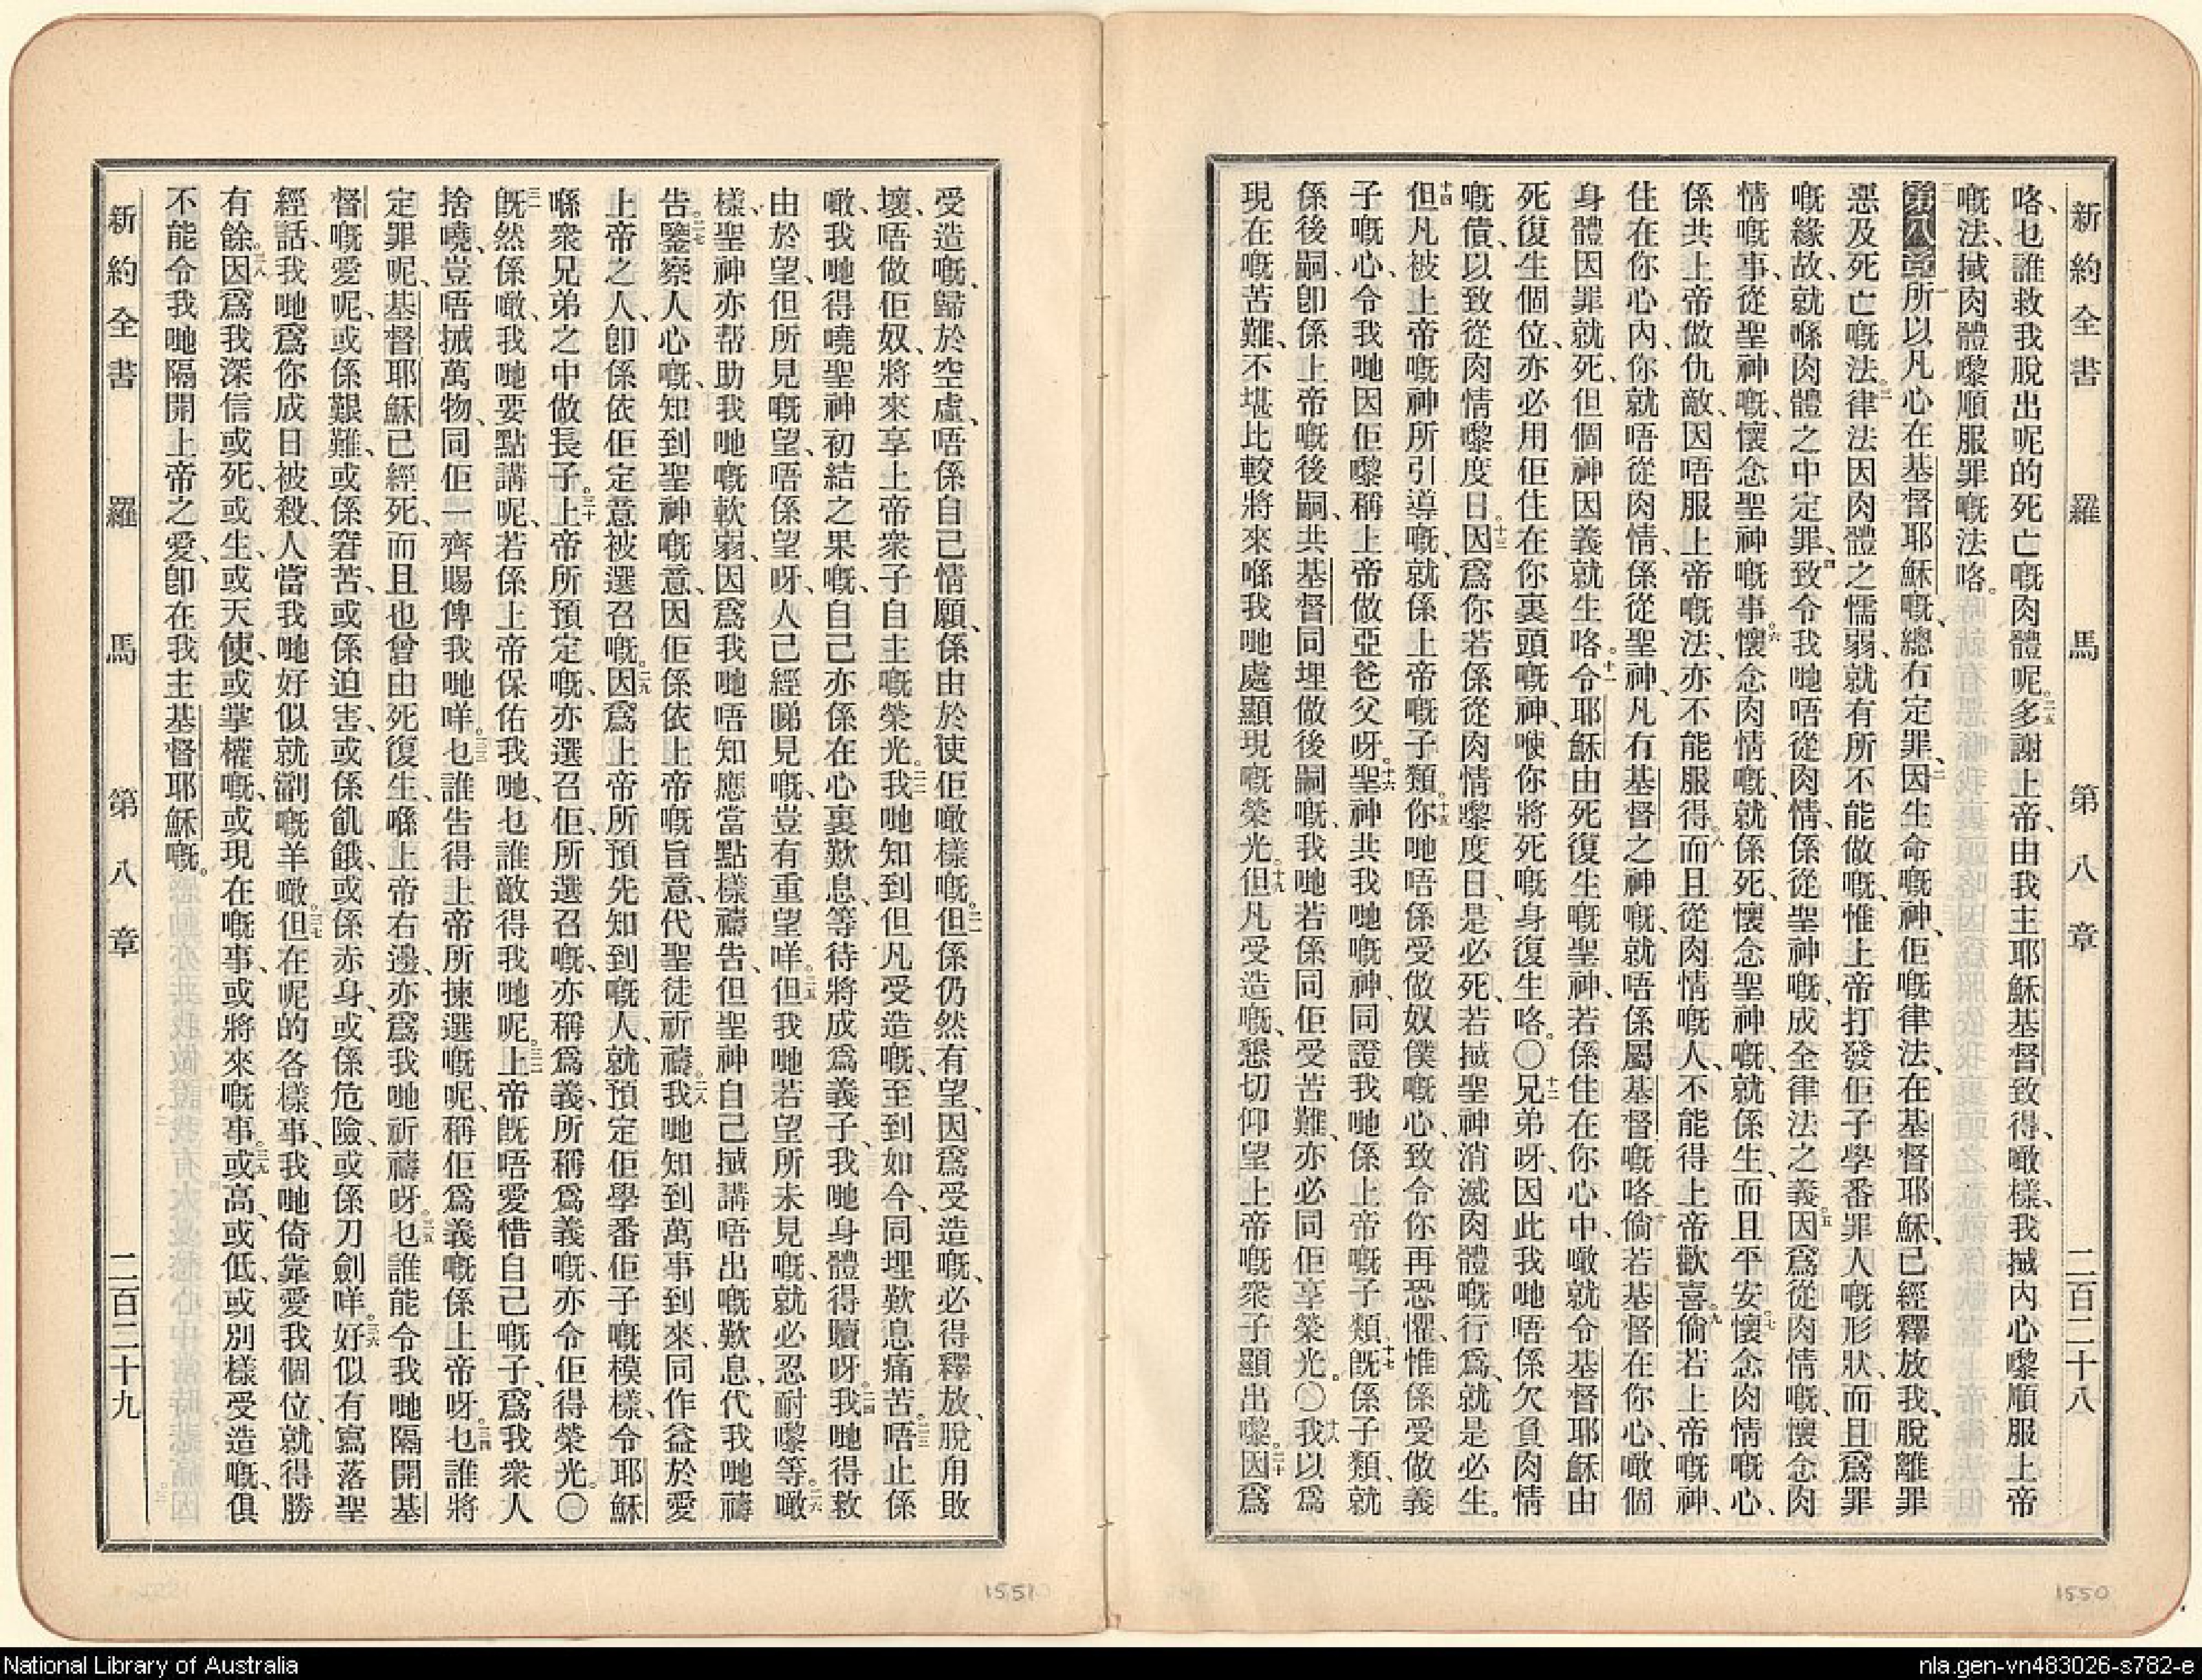 新約全書 羅馬 第八章 二百二十八
咯、乜誰救我脫出呢的死亡嘅肉體呢。二五多謝上帝、由我主耶穌基督致得、噉樣、我搣內心嚟順服上帝
嘅法、搣肉體嚟順服罪嘅法咯。
第八章一所以凡心在基督耶穌嘅、總冇定罪、二因生命嘅神、佢嘅律法、在基督耶穌、已經釋放我、脫離罪
惡及死亡嘅法。三律法因肉體之懦弱、就有所不能做嘅、惟上帝打發佢子學番罪人嘅形狀、而且爲罪
嘅緣故、就喺肉體之中定罪、四致令我哋唔從肉情、係從聖神嘅、成全律法之義。五因爲從肉情嘅、懷念肉
情嘅事、從聖神嘅、懷念聖神嘅事。六懷念肉情嘅、就係死、懷念聖神嘅、就係生、而且平安。七懷念肉情嘅心、
係共上帝做仇敵、因唔服上帝嘅法、亦不能服得。八而且從肉情嘅人、不能得上帝歡喜。九倘若上帝嘅神、
住在你心內、你就唔從肉情、係從聖神、凡冇基督之神嘅、就唔係屬基督嘅咯、十倘若基督在你心、噉個
身體因罪就死、但個神因義就生咯。十一令耶穌由死復生嘅聖神、若係住在你心中、噉就令基督耶穌由
死復生個位、亦必用佢住在你裏頭嘅神、使你將死嘅身復生咯。〇十二兄弟呀、因此我哋唔係欠負肉情
嘅債、以致從肉情嚟度日。十三因爲你若係從肉情嚟度日、是必死、若搣聖神消滅肉體嘅行爲、就是必生。
十四但凡被上帝嘅神所引導嘅、就係上帝嘅子類。十五你哋唔係受做奴僕嘅心、致令你再恐懼、惟係受做義
子嘅心、令我哋因佢嚟稱上帝做亞爸父呀。十六聖神共我哋嘅神、同證我哋係上帝嘅子類、十七旣係子類、就
係後嗣、卽係上帝嘅後嗣、共基督同埋做後嗣嘅、我哋若係同佢受苦難、亦必同佢享榮光。〇十八我以爲
現在嘅苦難、不堪比較將來喺我哋處顯現嘅榮光。十九但凡受造嘅、懇切仰望上帝嘅衆子顯出嚟。二十因爲
受造嘅、歸於空虛、唔係自己情願、係由於使佢噉樣嘅。二一但係仍然有望、因爲受造嘅、必得釋放、脫甪敗
壞、唔做佢奴、將來享上帝衆子自主嘅榮光。二二我哋知到但凡受造嘅、至到如今、同埋歎息痛苦。二三唔止係
噉、我哋得嘵聖神初結之果嘅、自己亦係在心裏歎息、等待將成爲義子、我哋身體得贖呀。二四我哋得救
由於望、但所見嘅望、唔係望呀、人已經睇見嘅、豈有重望咩。二五但我哋若望所未見嘅、就必忍耐嚟等。二六噉
樣、聖神亦帮助我哋嘅軟弱、因爲我哋唔知應當點樣禱告、但聖神自己搣講唔出嘅歎息、代我哋禱
告。二七鑒察人心嘅、知到聖神嘅意、因佢係依上帝嘅旨意、代聖徒祈禱。二八我哋知到萬事到來、同作益於愛
上帝之人、卽係依佢定意被選召嘅。二九因爲上帝所預先知到嘅人、就預定佢學番佢子嘅模樣、令耶穌
喺衆兄弟之中做長子。三十上帝所預定嘅、亦選召佢、所選召嘅、亦稱爲義、所稱爲義嘅、亦令佢得榮光。〇
三一旣然係噉、我哋要點講呢、若係上帝保佑我哋、乜誰敵得我哋呢。三二上帝旣唔愛惜自己嘅子、爲我衆人
捨嘵、豈唔搣萬物、同佢一齊賜俾我哋咩。三三乜誰告得上帝所揀選嘅呢、稱佢爲義嘅係上帝呀。三四乜誰將
定罪呢、基督耶穌已經死、而且也曾由死復生、喺上帝右邊、亦爲我哋祈禱呀。三五乜誰能令我哋隔開基
督嘅愛呢、或係艱難、或係窘苦、或係迫害、或係飢餓、或係赤身、或係危險、或係刀劍咩。三六好似有寫落聖
經話、我哋爲你成日被殺、人當我哋好似就劏嘅羊噉、三七但在呢的各樣事、我哋倚靠愛我個位、就得勝
有餘。三八因爲我深信或死、或生、或天使、或掌權嘅、或現在嘅事、或將來嘅事。三九或高、或低、或別樣受造嘅、俱
不能令我哋隔開上帝之愛、卽在我主基督耶穌嘅。
新約全書 羅馬 第八章 二百二十九
1551
1550
National Library of Australia
nla.gen-vn483026-s782-e